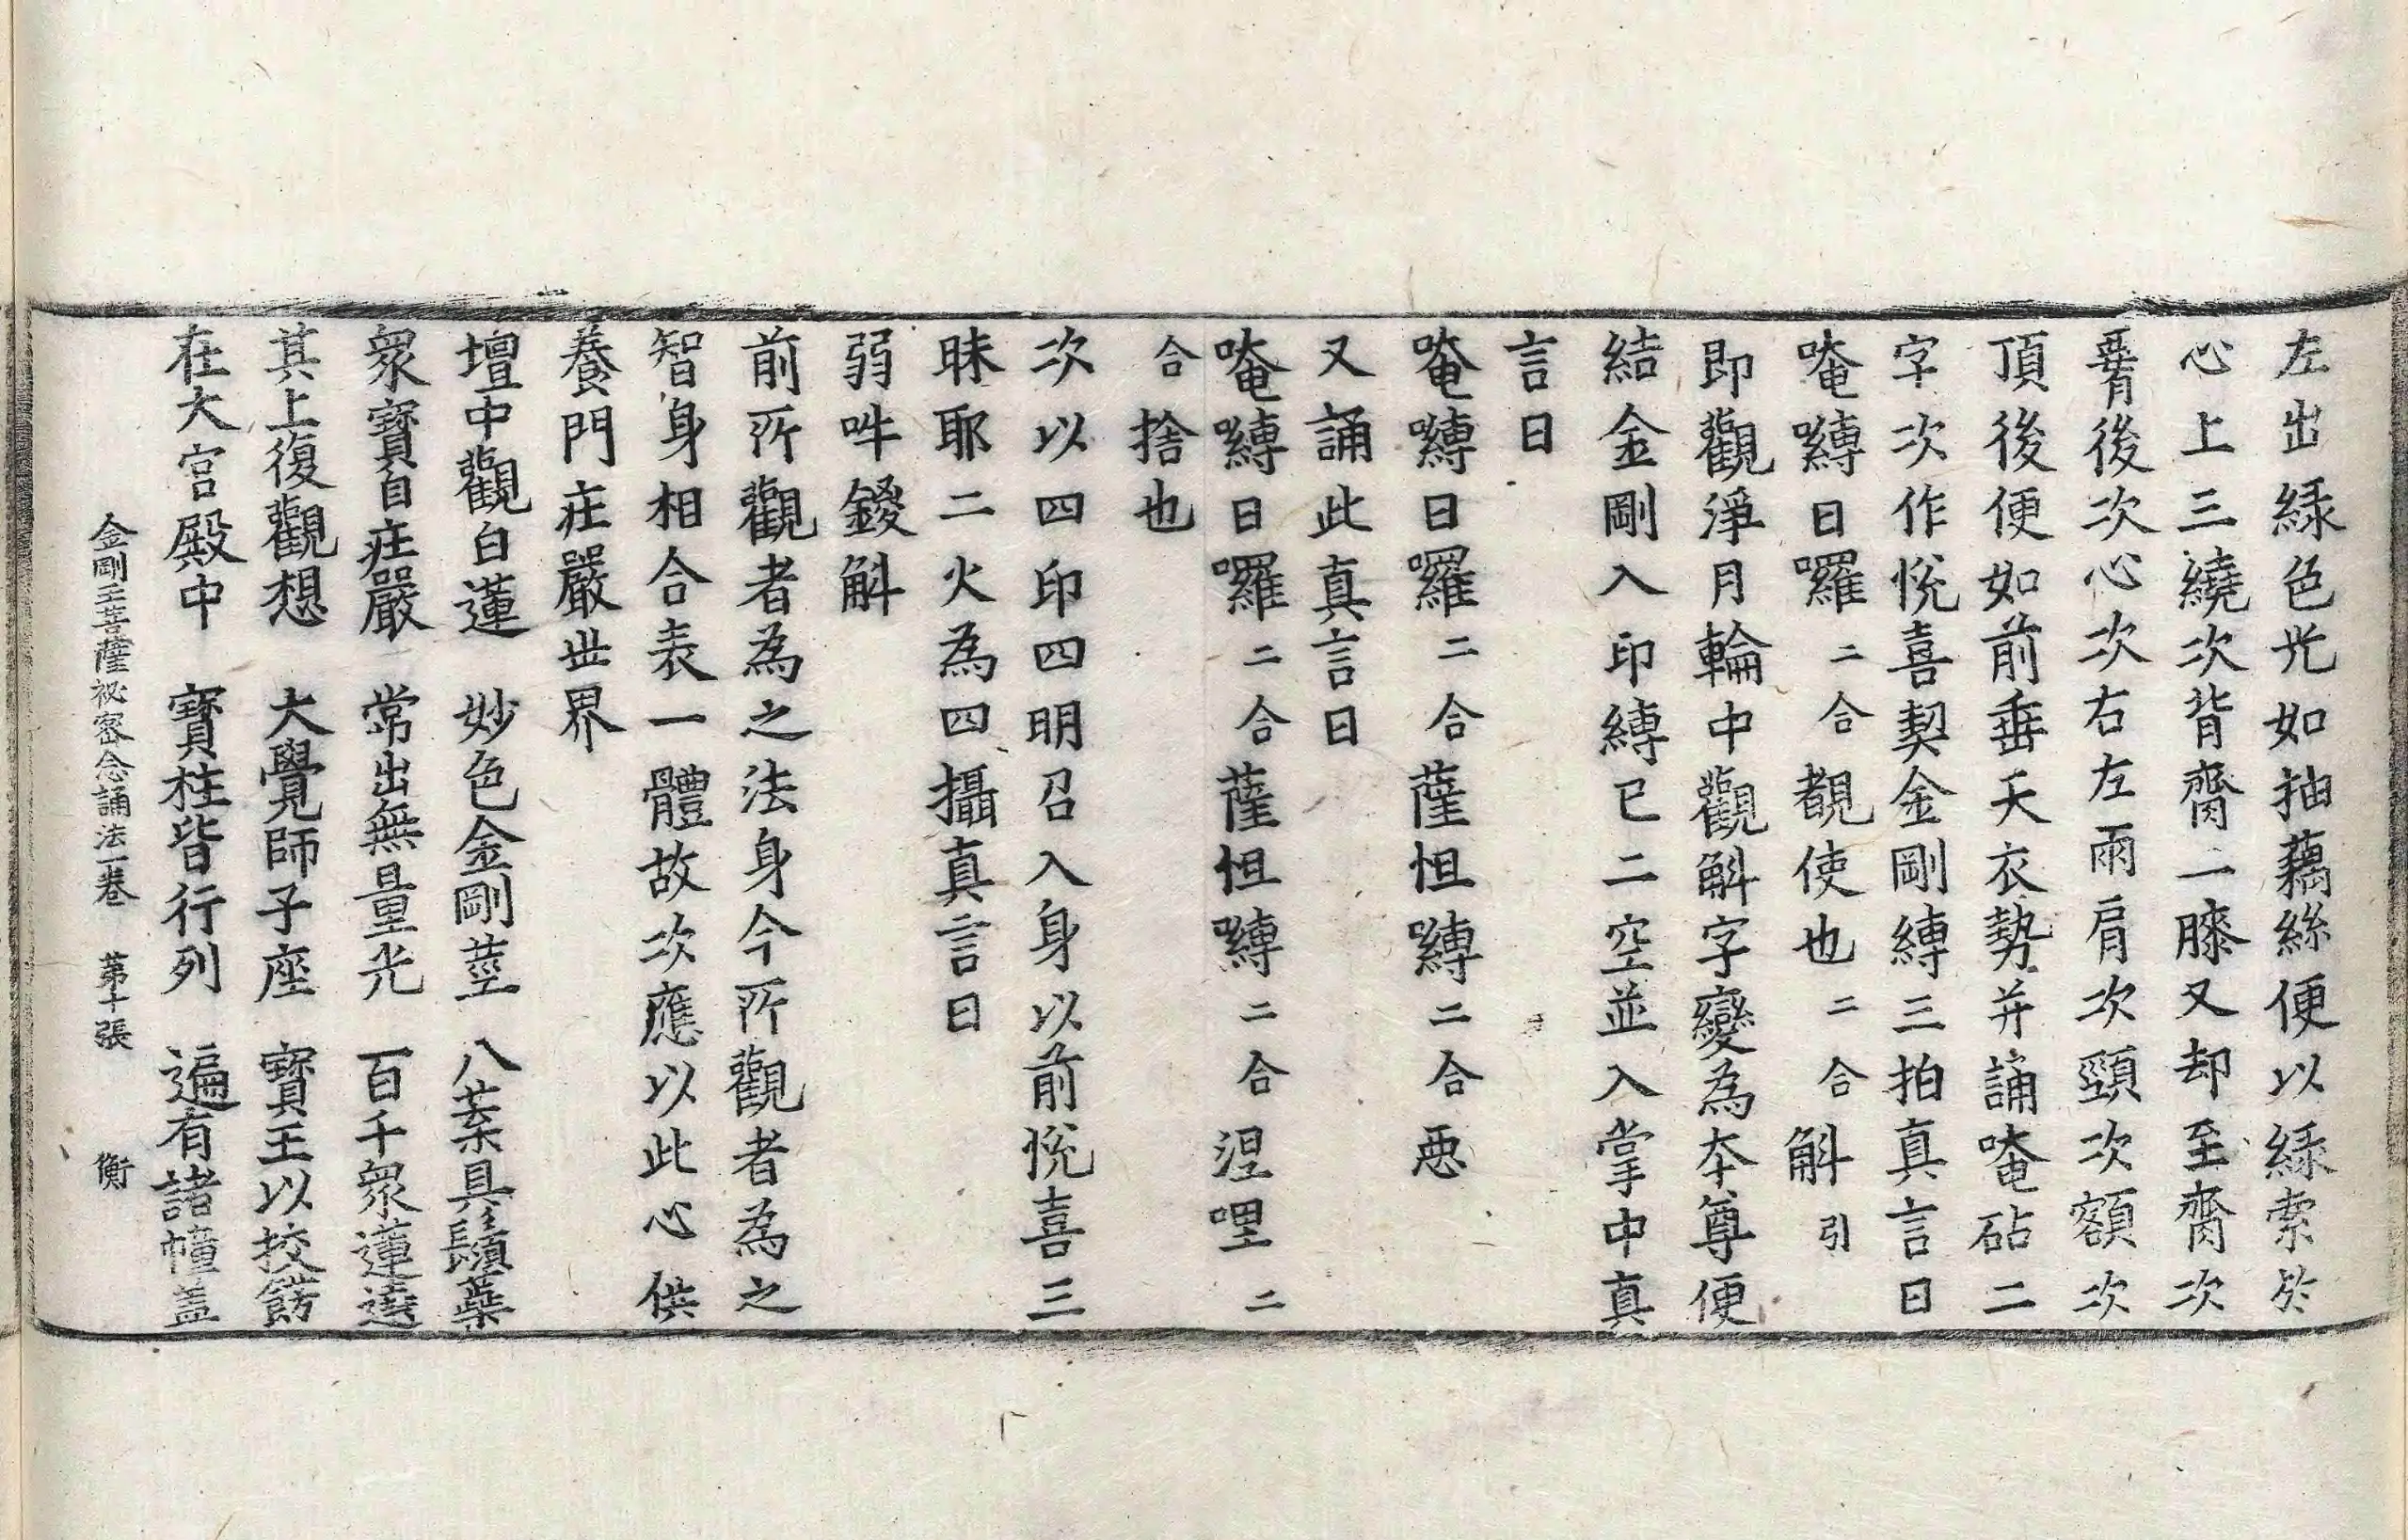 左出綠色光如抽藕絲便以綠索於
心上三繞次背齊二膝又却至齊次
背後次心次右左兩肩次頸次額次
頂後便如前垂天衣勢并誦唵砧二
字次作悅喜契金剛縛三拍真言曰
唵嚩日囉二合覩使也二合斛引
即觀淨月輪中觀斛字變為本尊便
結金剛入印縛已二空並入掌中真
言曰
唵嚩日囉二合薩怛嚩二合惡
又誦此真言曰
唵嚩日囉二合薩怛嚩二合涅哩二
合捨也
次以四印四明召入身以前悅喜三
昧耶二火為四攝真言曰
弱吽鑁斛
前所觀者為之法身今所觀者為之
智身相合表一體故次應以此心供
養門莊嚴世界
壇中觀白蓮　妙色金剛莖　八葉具鬚蘂
衆寶自莊嚴　常出無量光　百千衆蓮遶
其上復觀想　大覺師子座　寶王以挍餝
在大宮殿中　寶柱皆行列　遍有諸幢蓋
金剛王菩薩祕密念誦法一卷　第十張　衡